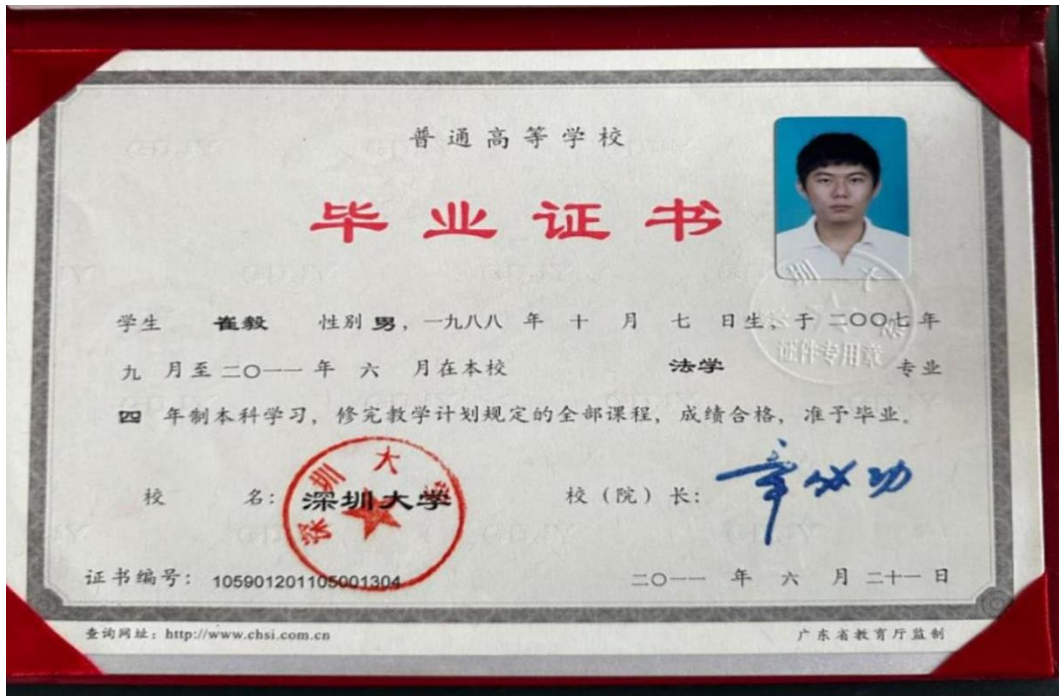 普通高等学校
毕业证书
学生 崔毅 性别 男，一九八八 年 十 月 七 日生，于 二〇〇七 年
九 月至 二〇一一 年 六 月在本校 法学 专业
四 年制本科学习，修完教学计划规定的全部课程，成绩合格，准予毕业。
校 名：深圳大学
校（院）长：章必功
深圳大学
证件专用章
证书编号：105901201105001304
二〇一一 年 六 月 二十一 日
查询网址：http://www.chsi.com.cn
广东省教育厅监制